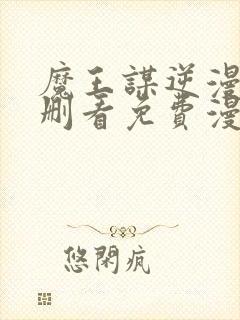 魔王謀逆漫
刪看免費漫
悠閑瘋